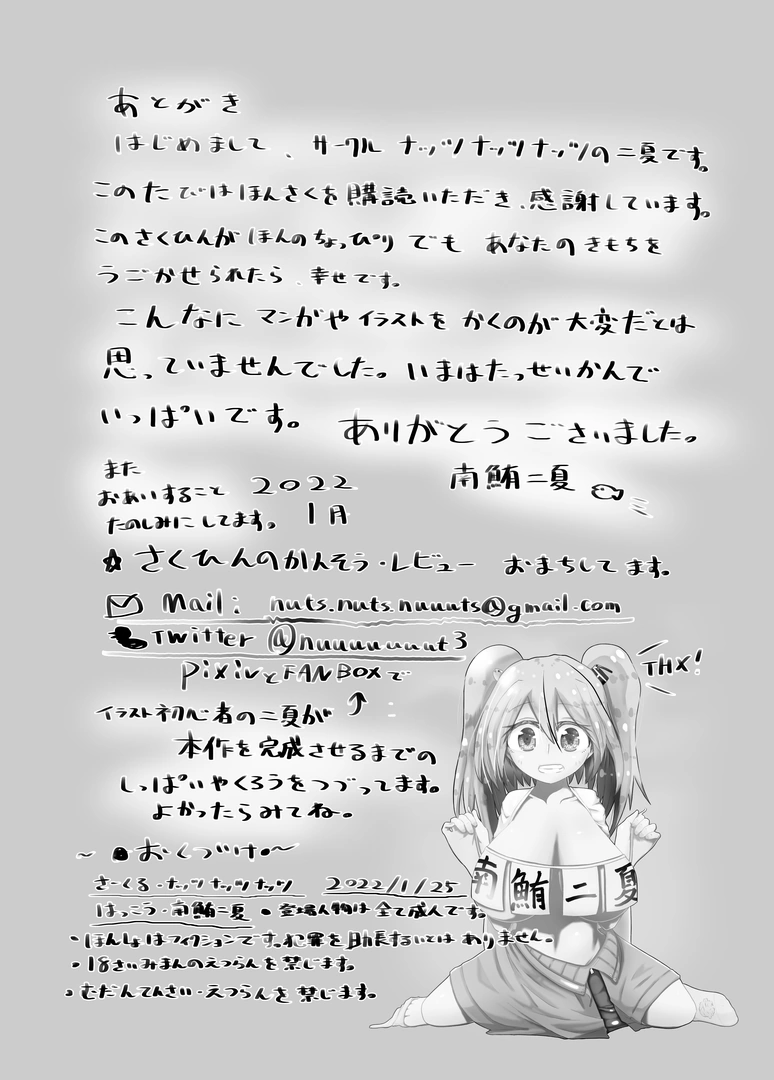 あとがき
はじめまして、サークル ナッツナッツナッツの二夏です。
このたびはほんさくを購読いただき、感謝しています。
このさくひんが ほんのちょっぴり でも あなたのきもちを
うごかせられたら、幸せです。
こんなに マンガや イラストを かくのが 大変だとは
思っていませんでした。いまはたっせいかんで
いっぱいです。
ありがとうございました。
南鮪二夏
また
おあいすること
たのしみにしてます。
2022
1月
☆さくひんのかんそう・レビュー おまちしてます。
Mail: nuts.nuts.nuuuts@gmail.com
Twitter @nuuuuuuut3
pixivとFANBOXで
イラスト初心者の二夏が
本作を完成させるまでの
しっぱいやくろうをつづってます。
よかったらみてね。
THX!
南鮪二夏
~●おくづけ●~
さーくる・ナッツナッツナッツ 2022/1/25
はっこう・南鮪二夏 ●登場人物は全て成人です。
・ほんしょはフィクションです。犯罪を助長するいとはありません。
・18さいみまんのえつらんを禁じます。
・むだんてんさい・えつらんを禁じます。